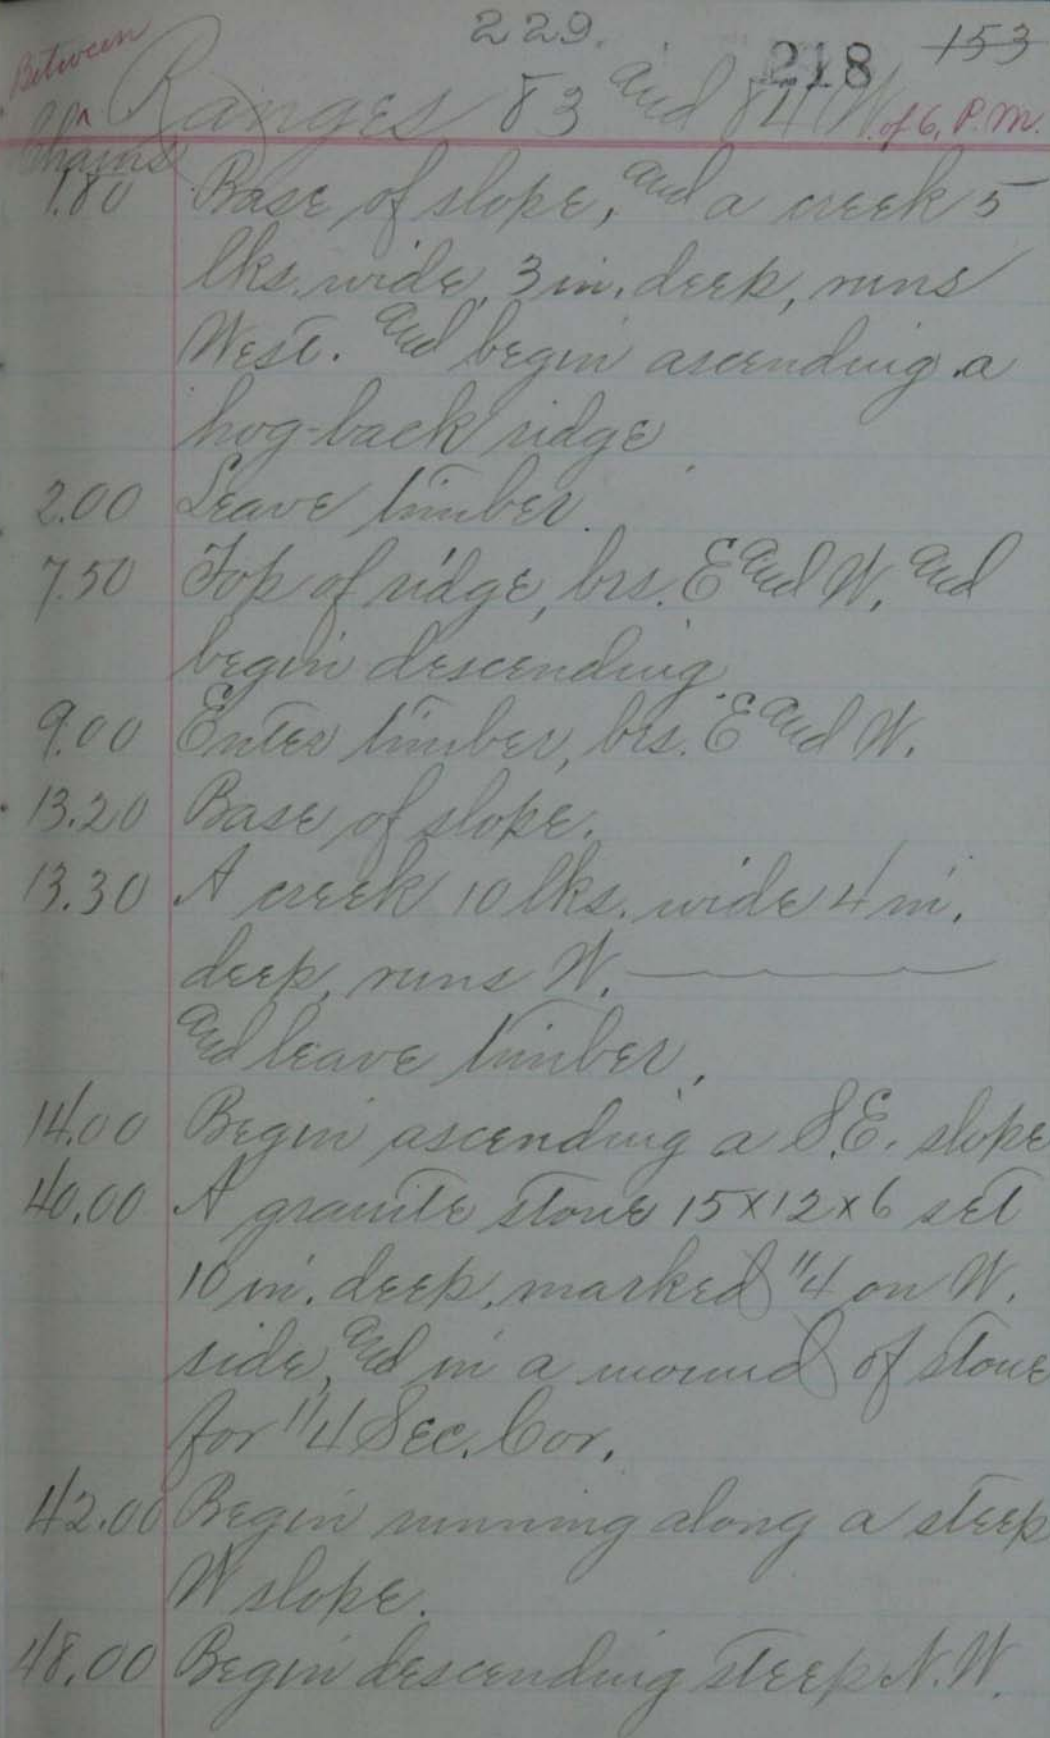 229.
218 153
Between
Ranges 83 and 84 W. of 6, P.M.
Chains
1.80 Base of slope, and a creek 5
lks. wide, 3 in. deep, runs
West. and begin ascending a
hog-back ridge
2.00 Leave timber.
7.50 Top of ridge, brs. E and W, and
begin descending.
9.00 Enter timber, brs. E and W.
13.20 Base of slope.
13.30 A creek 10 lks. wide 4 in.
deep, runs W.
and leave timber.
14.00 Begin ascending a S.E. slope
40.00 A granite stone 15x12x6 set
10 in. deep, marked 1/4 on W.
side, and in a mound of stone
for 1/4 Sec. Cor.
42.00 Begin running along a steep
W slope.
48.00 Begin descending steep N.W.